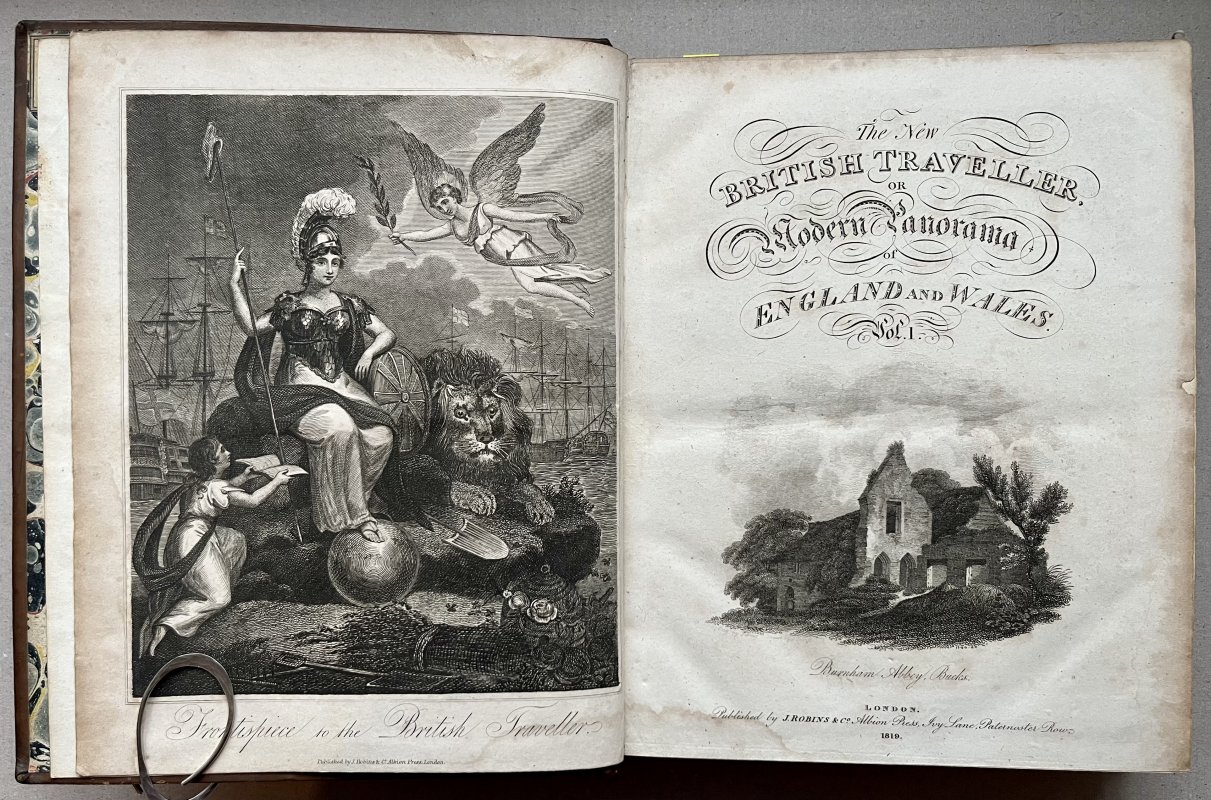 Frontispiece to the British Traveller.
Published by J. Robins & Co. Albion Press, London.
The New
BRITISH TRAVELLER,
OR
Modern Panorama,
of
ENGLAND AND WALES.
Vol. I.
Burnham Abbey, Bucks.
LONDON.
Published by J. ROBINS & Co. Albion Press, Ivy Lane, Paternoster Row.
1819.